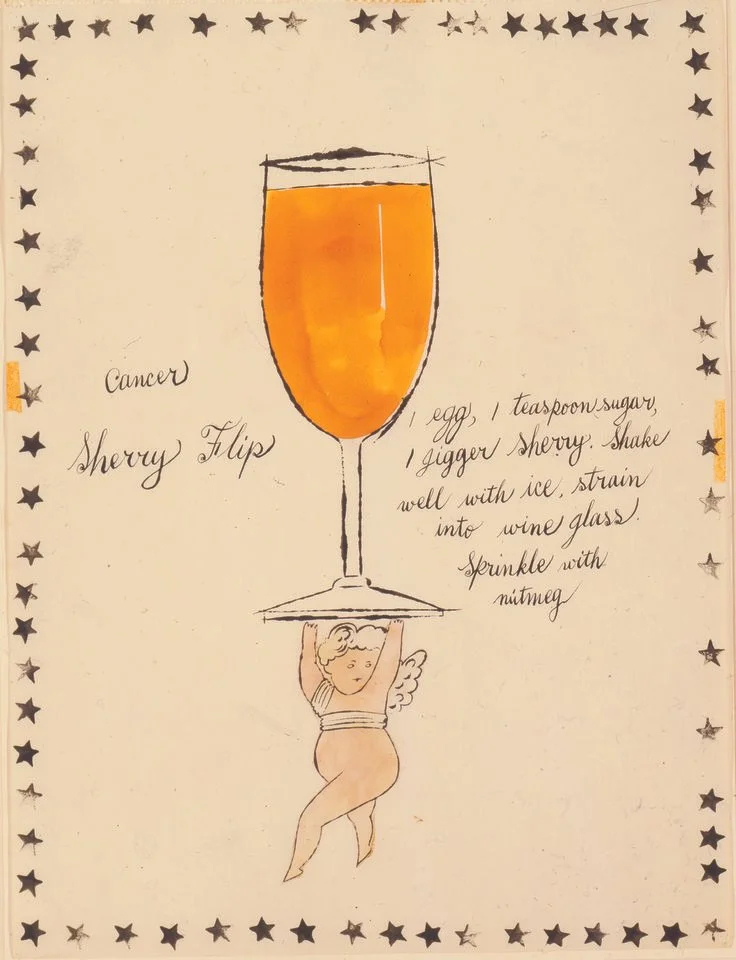 Cancer
Sherry Flip
1 egg, 1 teaspoon sugar,
1 jigger sherry. Shake
well with ice, strain
into wine glass.
Sprinkle with
nutmeg